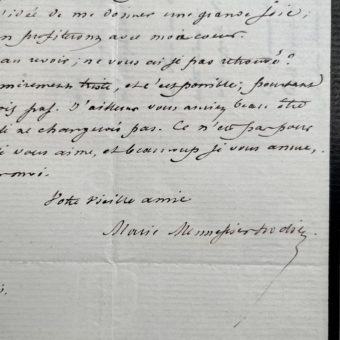 l'idée de me donner une grande joie;
n profiterons avec mon cœur.
au revoir; ne vous ai je pas retrouvé?
mirement triste, et c'est possible; pourtant
is pas. D'ailleurs vous auriez beau être
i ne changerois pas. Ce n'est pas pour
i vous aime, et beaucoup je vous aime,
Votre vieille amie
Marie Mennessier Nodier.